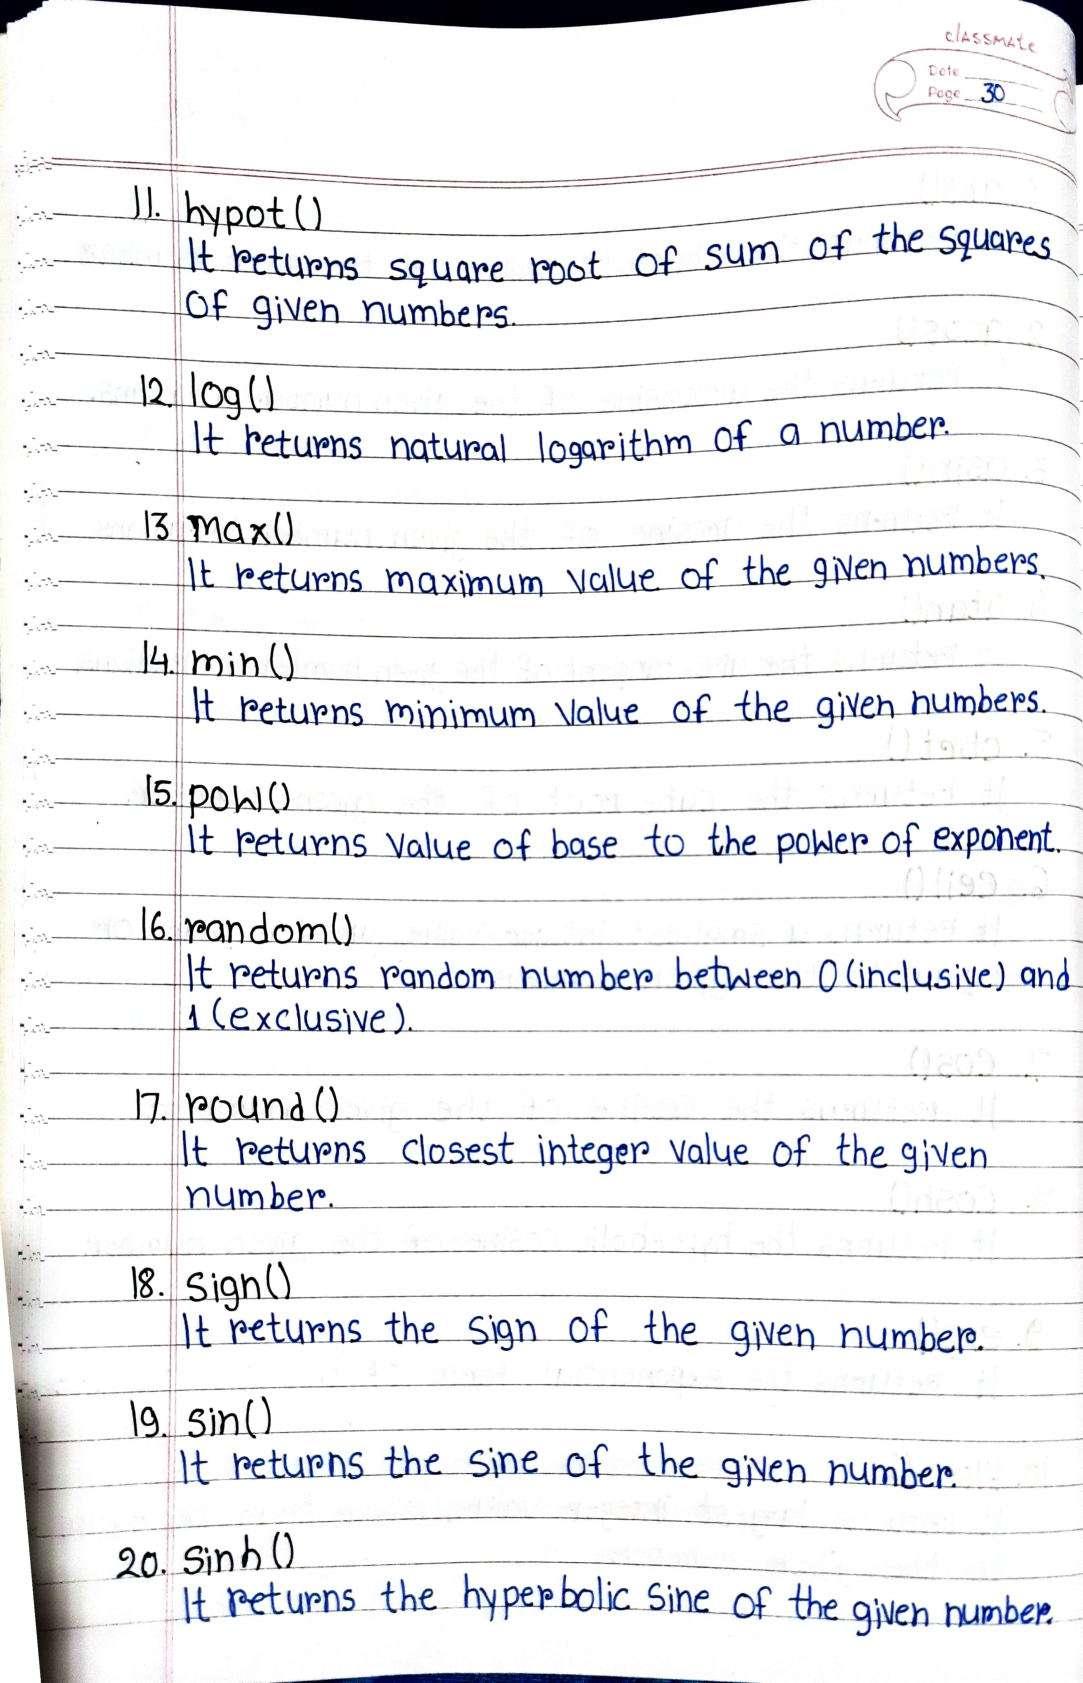 classmate
Date
Page 30
11. hypot()
It returns square root of sum of the squares
of given numbers.
12. log()
It returns natural logarithm of a number.
13 max()
It returns maximum value of the given numbers.
14. min()
It returns minimum value of the given numbers.
15. pow()
It returns value of base to the power of exponent.
16. random()
It returns random number between 0 (inclusive) and
1 (exclusive).
17. round()
It returns closest integer value of the given
number.
18. sign()
It returns the sign of the given number.
19. sin()
It returns the sine of the given number.
20. sinh()
It returns the hyperbolic sine of the given number.